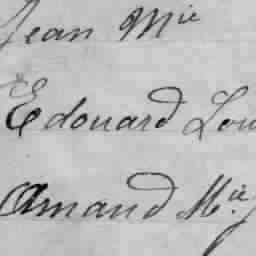 Jean Mie
Edouard Lou
Amand Mie.